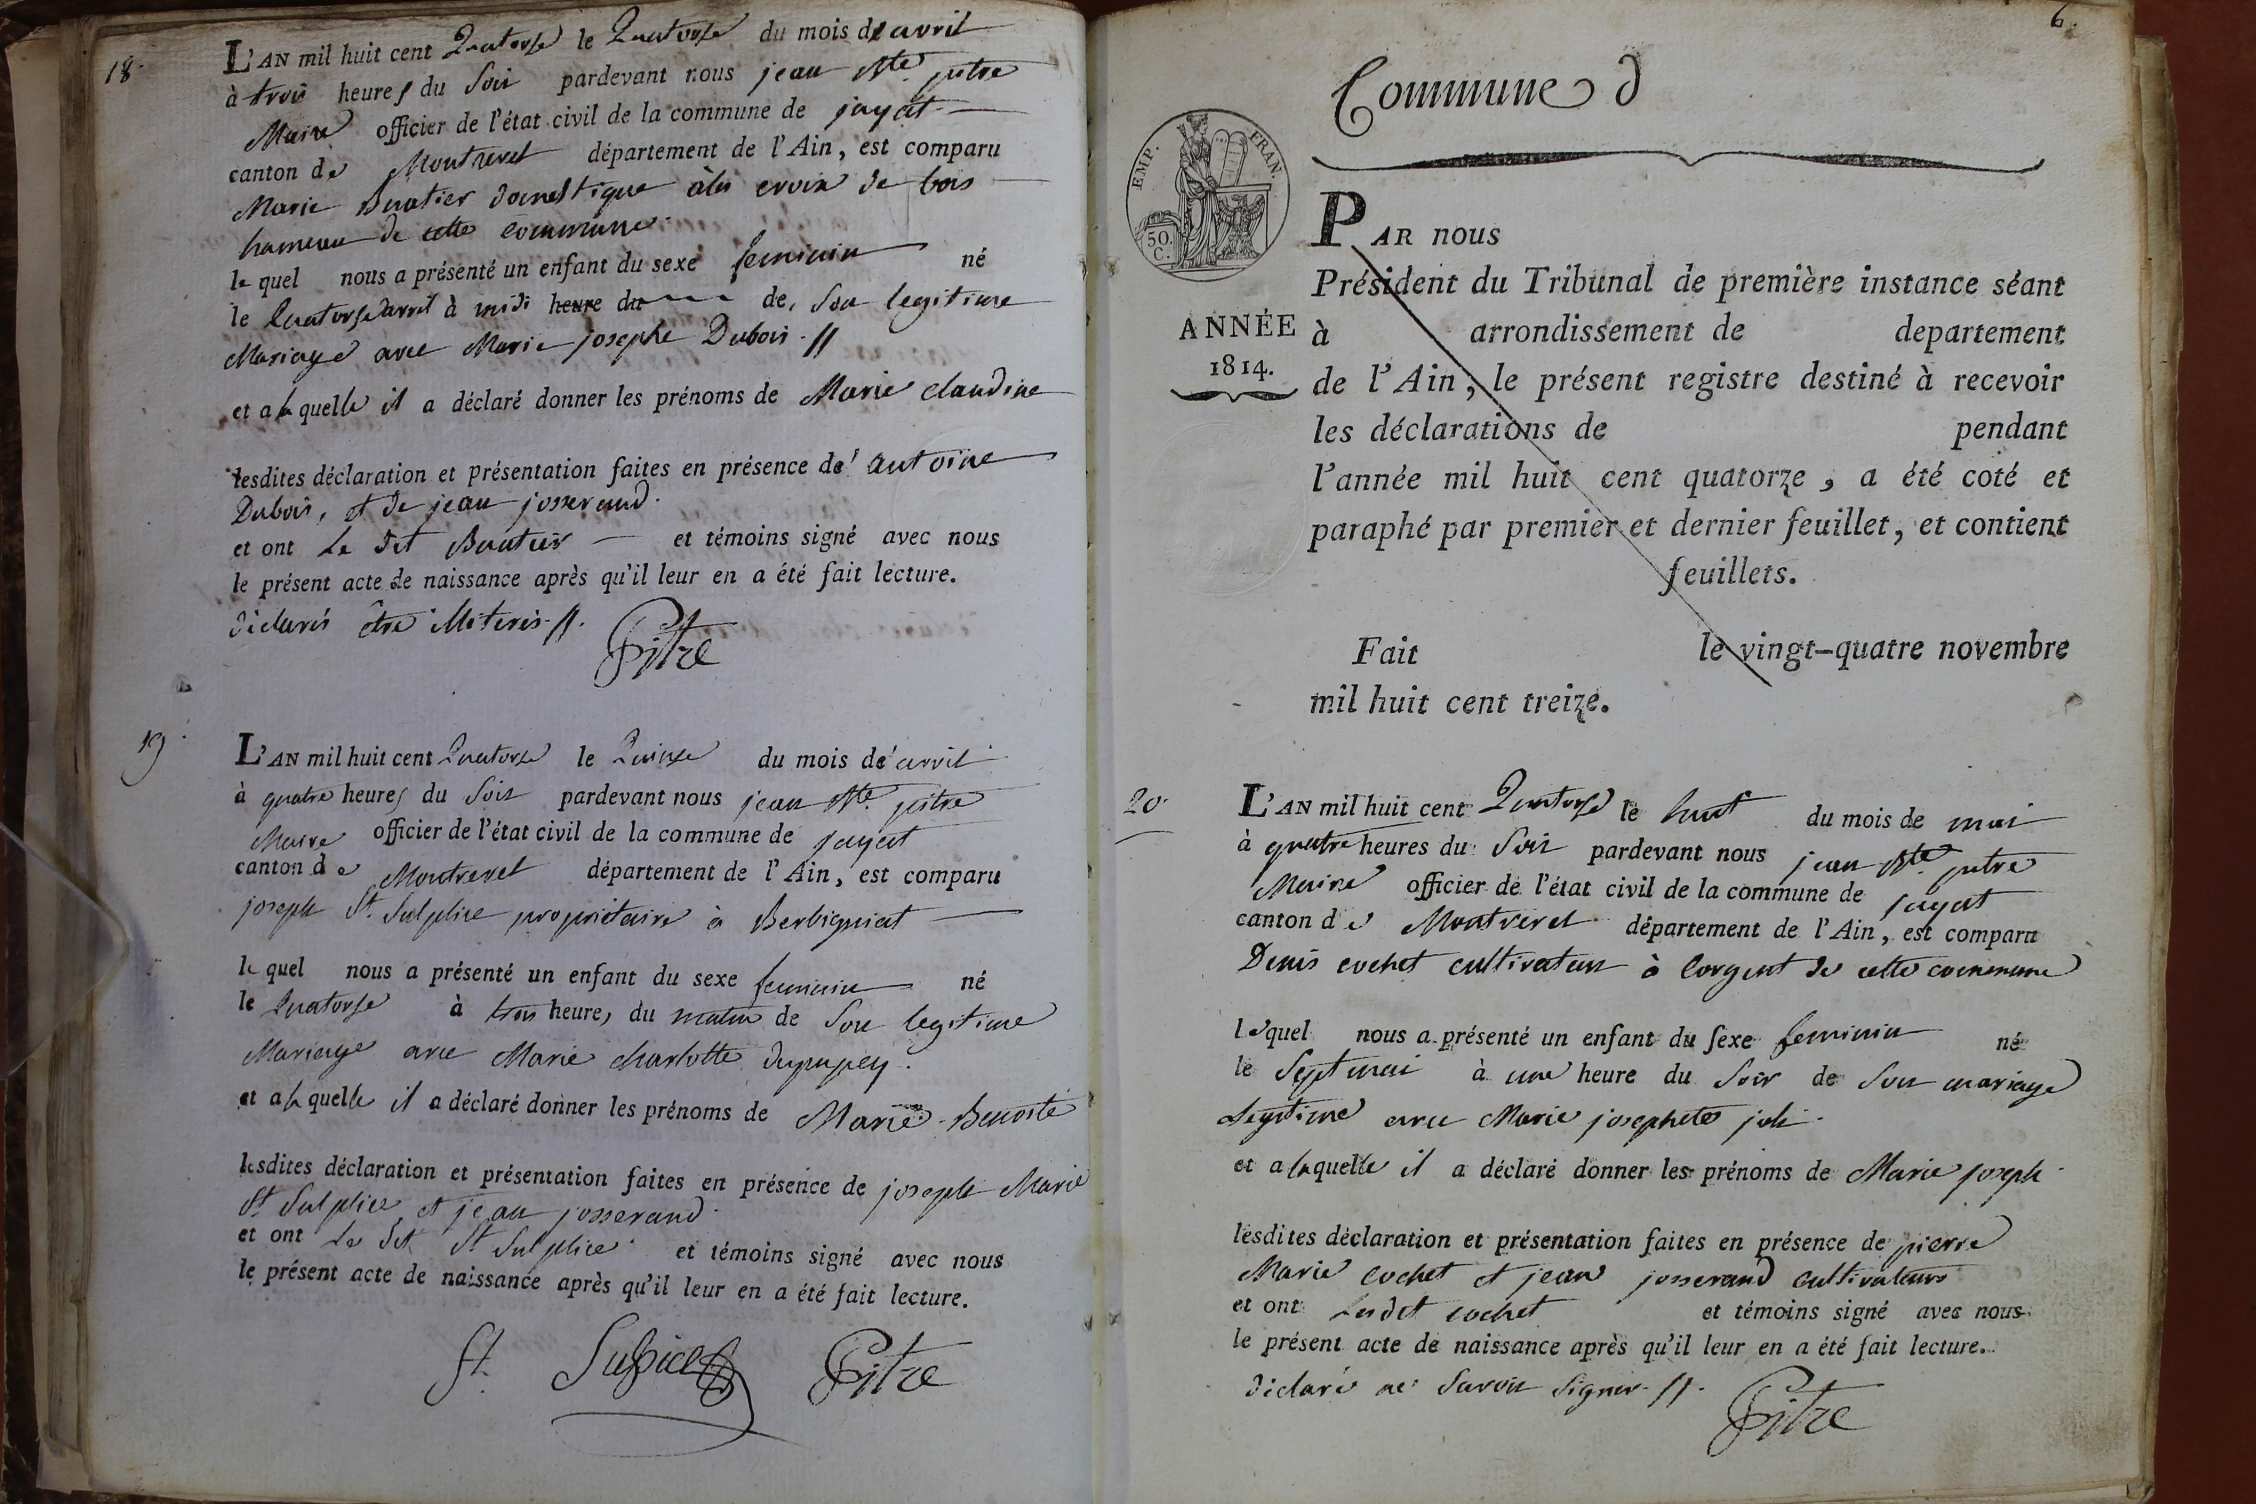 18.
L'AN mil huit cent Quatorse le Quatorse du mois de avril
à trois heures du Soir pardevant nous jean Bte. pitre
Maire officier de l'état civil de la commune de jayat
canton de Montrevel département de l'Ain, est comparu
Marie Buatier domestique à la croix de bois
hameau de cette commune.
le quel nous a présenté un enfant du sexe feminin né
le Quatorse avril à midi heure du de, Son legitime
Mariage avec Marie josephe Dubois. //
et a laquelle il a déclaré donner les prénoms de Marie claudine
lesdites déclaration et présentation faites en présence de antoine
Dubois, et de jean josserand.
et ont Le dit Buatier et témoins signé avec nous
le présent acte de naissance après qu'il leur en a été fait lecture.
déclarés être illiterés. //.
Pitre
19.
L'AN mil huit cent Quatorse le Quinse du mois de avril
à quatre heures du Soir pardevant nous jean Bte. pitre
Maire officier de l'état civil de la commune de jayat
canton de Montrevel département de l'Ain, est comparu
joseph St. Sulplice propriétaire à Berbigniat
le quel nous a présenté un enfant du sexe feminin né
le Quatorse à trois heures du matin de Son legitime
Mariage avec Marie charlotte dupupey.
et a laquelle il a déclaré donner les prénoms de Marie Benoite
lesdites déclaration et présentation faites en présence de joseph Marie
St Sulplice et jean josserand.
et ont Le dit St Sulplice et témoins signé avec nous
le présent acte de naissance après qu'il leur en a été fait lecture.
St. Sulpice Pitre
6.
Commune d
EMP. FRAN.
50. C.
ANNÉE
1814.
PAR nous
Président du Tribunal de première instance séant
à arrondissement de departement
de l'Ain, le présent registre destiné à recevoir
les déclarations de pendant
l'année mil huit cent quatorze, a été coté et
paraphé par premier et dernier feuillet, et contient
feuillets.
Fait le vingt-quatre novembre
mil huit cent treize.
20.
L'AN mil huit cent Quatorse le huit du mois de mai
à quatre heures du Soir pardevant nous jean Bte. pitre
Maire officier de l'état civil de la commune de jayat
canton de Montrevel département de l'Ain, est comparu
Denis cochet cultivateur à Corgent de cette commune
lequel nous a présenté un enfant du sexe feminin né
le Sept mai à une heure du Soir de Son mariage
Legitime avec Marie josephete joli.
et a laquelle il a déclaré donner les prénoms de Marie joseph
lesdites déclaration et présentation faites en présence de pierre
Marie cochet et jean josserand cultivateurs
et ont Ledit cochet et témoins signé avec nous
le présent acte de naissance après qu'il leur en a été fait lecture.
déclaré ne Savoir Signer. //.
Pitre